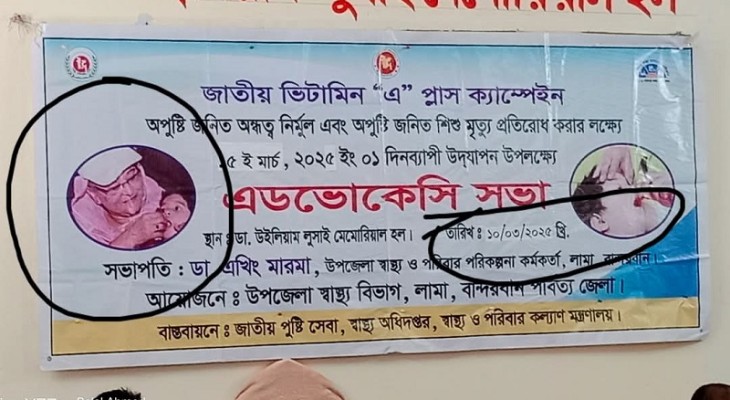 জাতীয় ভিটামিন “এ” প্লাস ক্যাম্পেইন
অপুষ্টি জনিত অন্ধত্ব নির্মুল এবং অপুষ্টি জনিত শিশু মৃত্যু প্রতিরোধ করার লক্ষ্যে
১৫ ই মার্চ, ২০২৫ ইং ০১ দিনব্যাপী উদ্‌যাপন উপলক্ষ্যে
এডভোকেসি সভা
স্থান : ডা. উইলিয়াম লুসাই মেমোরিয়াল হল। তারিখ : ১০/০৩/২০২৫ খ্রি.
সভাপতি : ডা এখিং মারমা, উপজেলা স্বাস্থ্য ও পরিবার পরিকল্পনা কর্মকর্তা, লামা, বান্দরবান।
আয়োজনে : উপজেলা স্বাস্থ্য বিভাগ, লামা, বান্দরবান পার্বত্য জেলা।
বাস্তবায়নে : জাতীয় পুষ্টি সেবা, স্বাস্থ্য অধিদপ্তর, স্বাস্থ্য ও পরিবার কল্যাণ মন্ত্রণালয়।